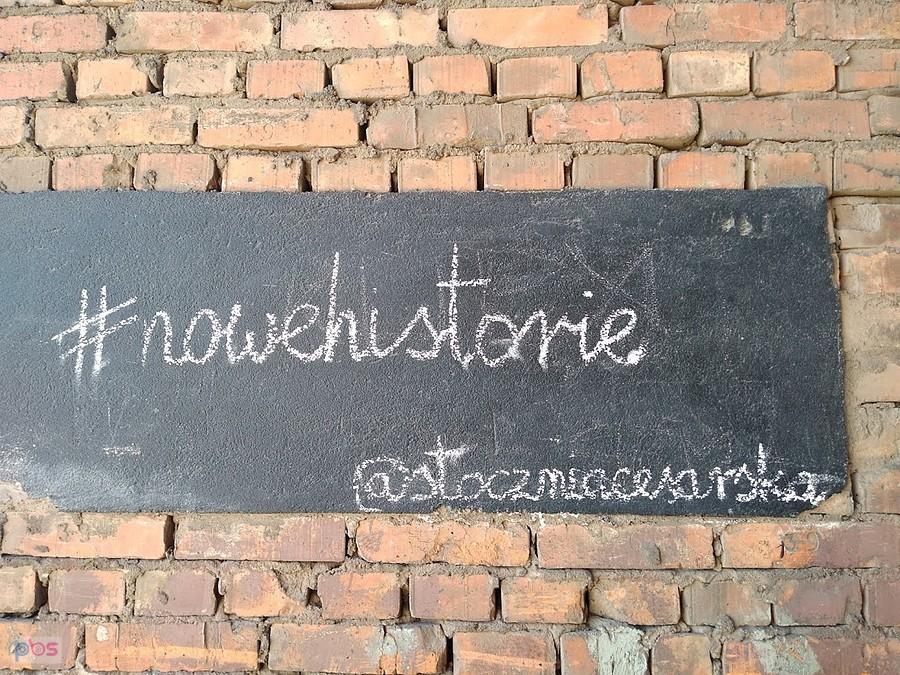 #nowehistorie
@stoczniacesarska
pbs